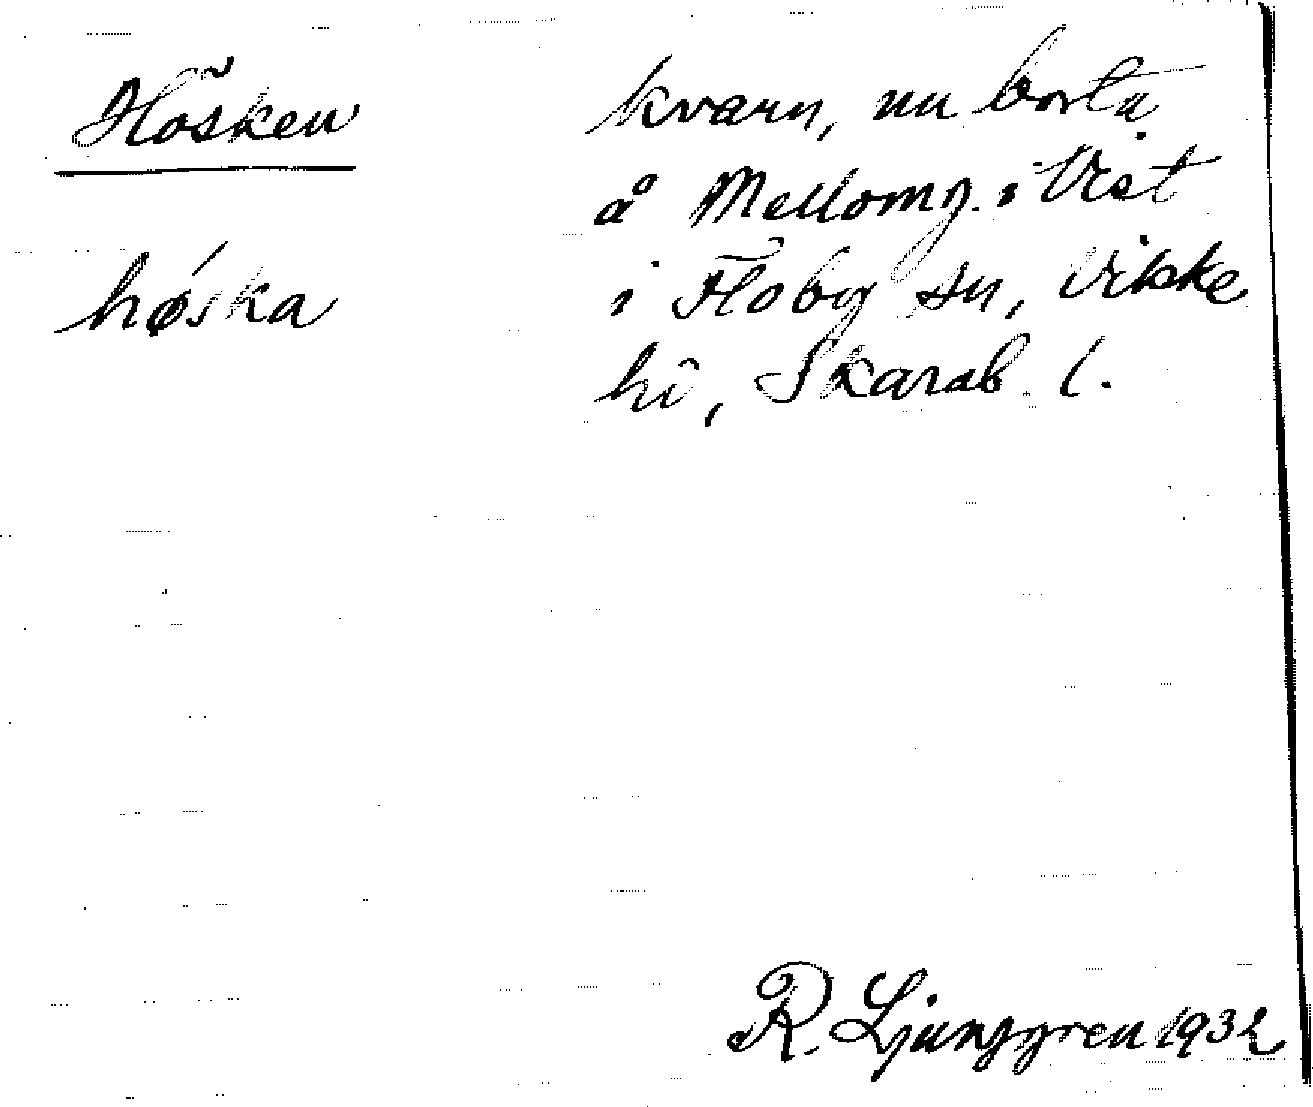 Hösken
høska
kvarn, nu borta
å Mellomg. i Vist
i Floby sn, Vilske
hd, Skarab. l.
R. Ljunggren 1932